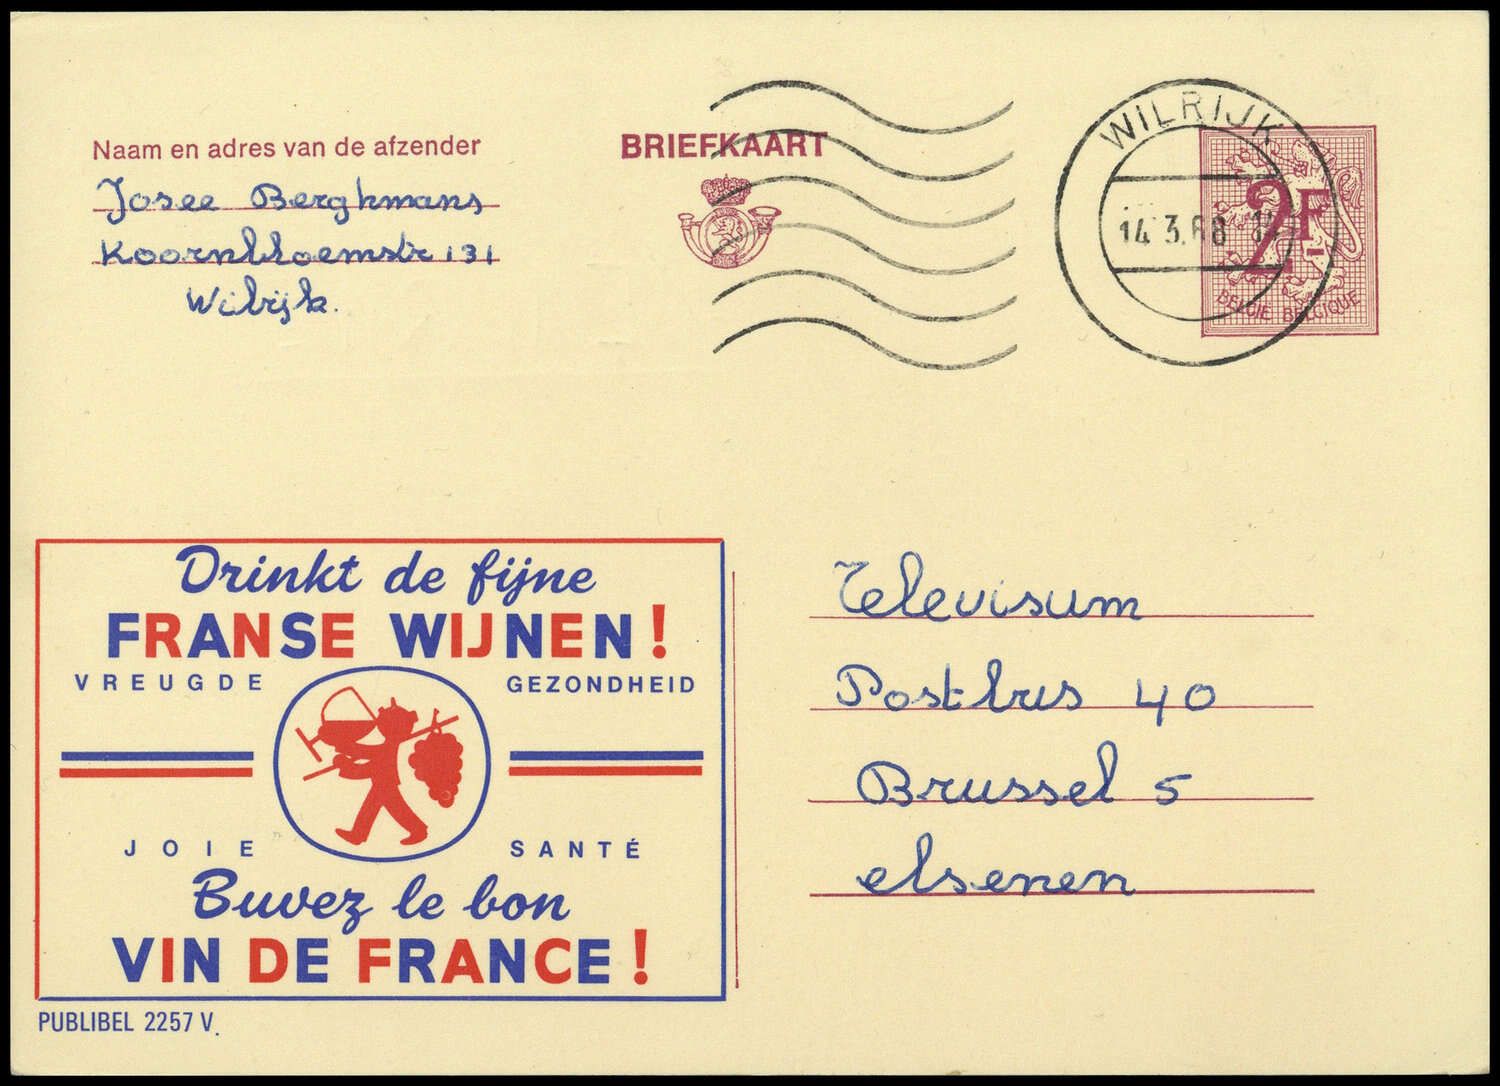 Naam en adres van de afzender
Josee Berghmans
Koornbloemstr 131
Wilrijk.
BRIEFKAART
WILRIJK
14.3.68 14
2F
BELGIE BELGIQUE
Drinkt de fijne
FRANSE WIJNEN!
VREUGDE GEZONDHEID
JOIE SANTÉ
Buvez le bon
VIN DE FRANCE!
PUBLIBEL 2257 V.
Televisum
Postbus 40
Brussel 5
elsenen